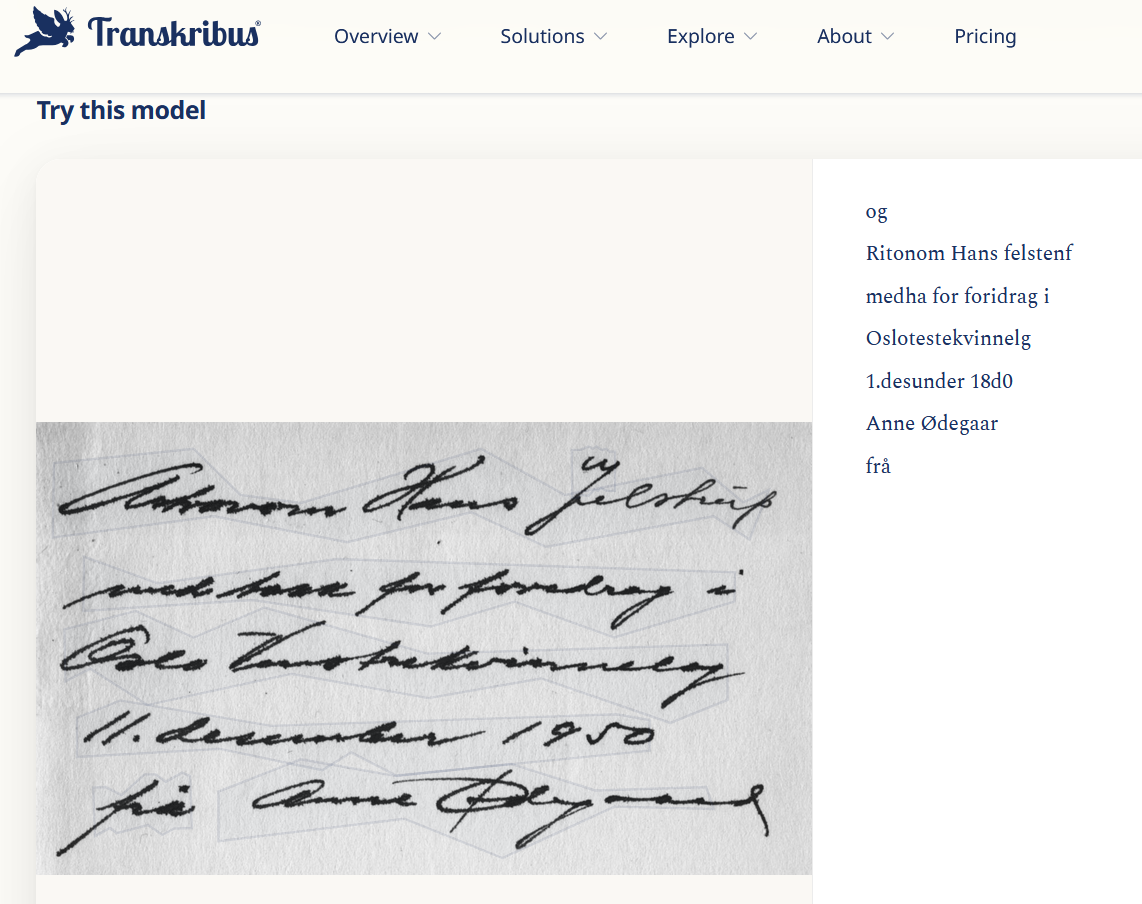 Transkribus®
Overview Solutions Explore About Pricing
Try this model
Astronom Hans Jelstrup
med takk for foredrag i
Oslo Venstrekvinnelag
11. desember 1950
frå Anne Ødegaard
og
Ritonom Hans felstenf
medha for foridrag i
Oslotestekvinnelg
1.desunder 18d0
Anne Ødegaar
frå